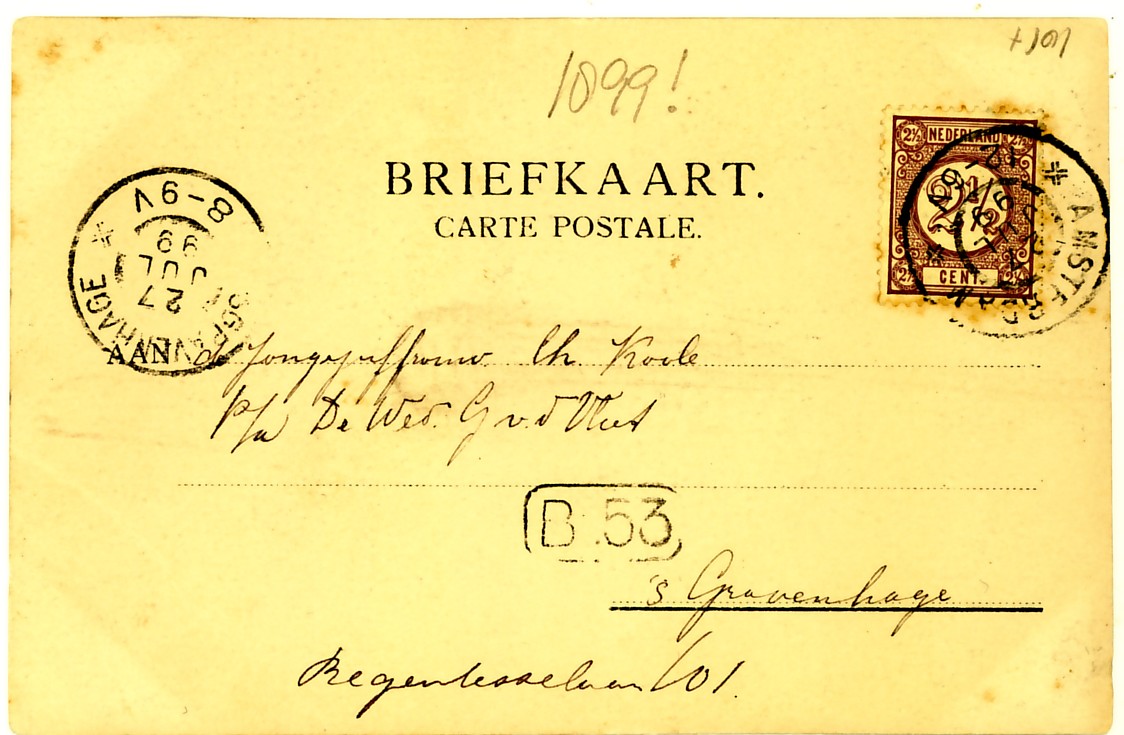 1899!
BRIEFKAART.
CARTE POSTALE.
2½ NEDERLAND 2½
2½
CENT.
AMSTERDAM
'S GRAVENHAGE
27 JUL 99
8-9V
AAN de Jongejuffrouw Ch Koole
P/a De Wed. G v.d Vliet
B.53
's Gravenhage
Regentesselaan 101.